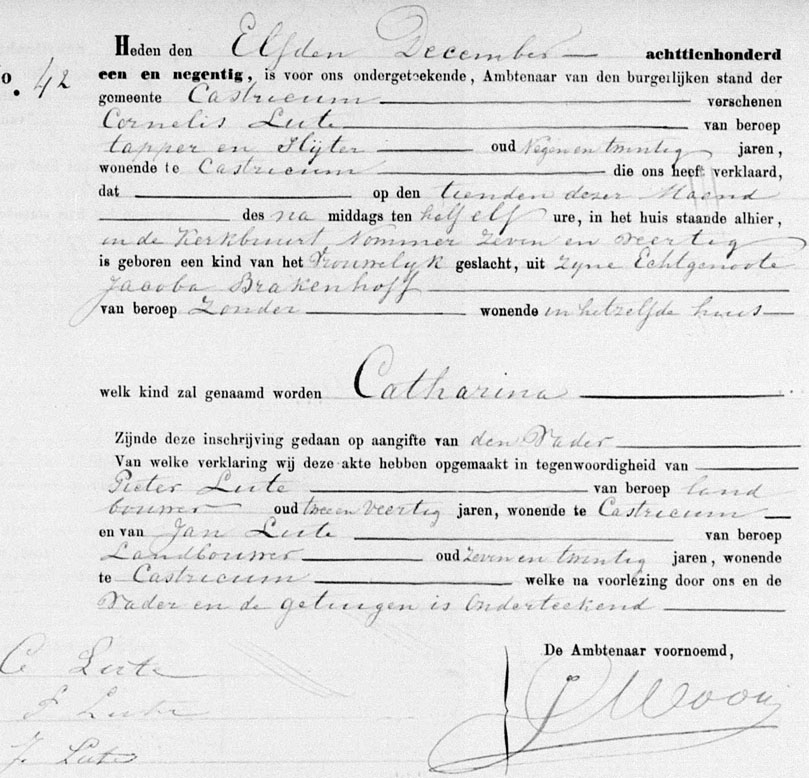 Heden den Elfden December achttienhonderd
No. 42 een en negentig, is voor ons ondergeteekende, Ambtenaar van den burgerlijken stand der
gemeente Castricum verschenen
Cornelis Lute van beroep
tapper en Slijter oud Negen en twintig jaren,
wonende te Castricum die ons heeft verklaard,
dat op den tienden dezer Maand
des na middags ten half elf ure, in het huis staande alhier,
in de Kerkbuurt Nommer Zeven en veertig
is geboren een kind van het Vrouwelyk geslacht, uit zyne Echtgenoote
Jacoba Brakenhoff
van beroep Zonder wonende in hetzelfde huis
welk kind zal genaamd worden Catharina
Zijnde deze inschrijving gedaan op aangifte van den Vader
Van welke verklaring wij deze akte hebben opgemaakt in tegenwoordigheid van
Pieter Lute van beroep land
bouwer oud twee en veertig jaren, wonende te Castricum
en van Jan Lute van beroep
Landbouwer oud zeven en twintig jaren, wonende
te Castricum welke na voorlezing door ons en de
Vader en de getuigen is Onderteekend
De Ambtenaar voornoemd,
C Lute
P Lute
J. Lute